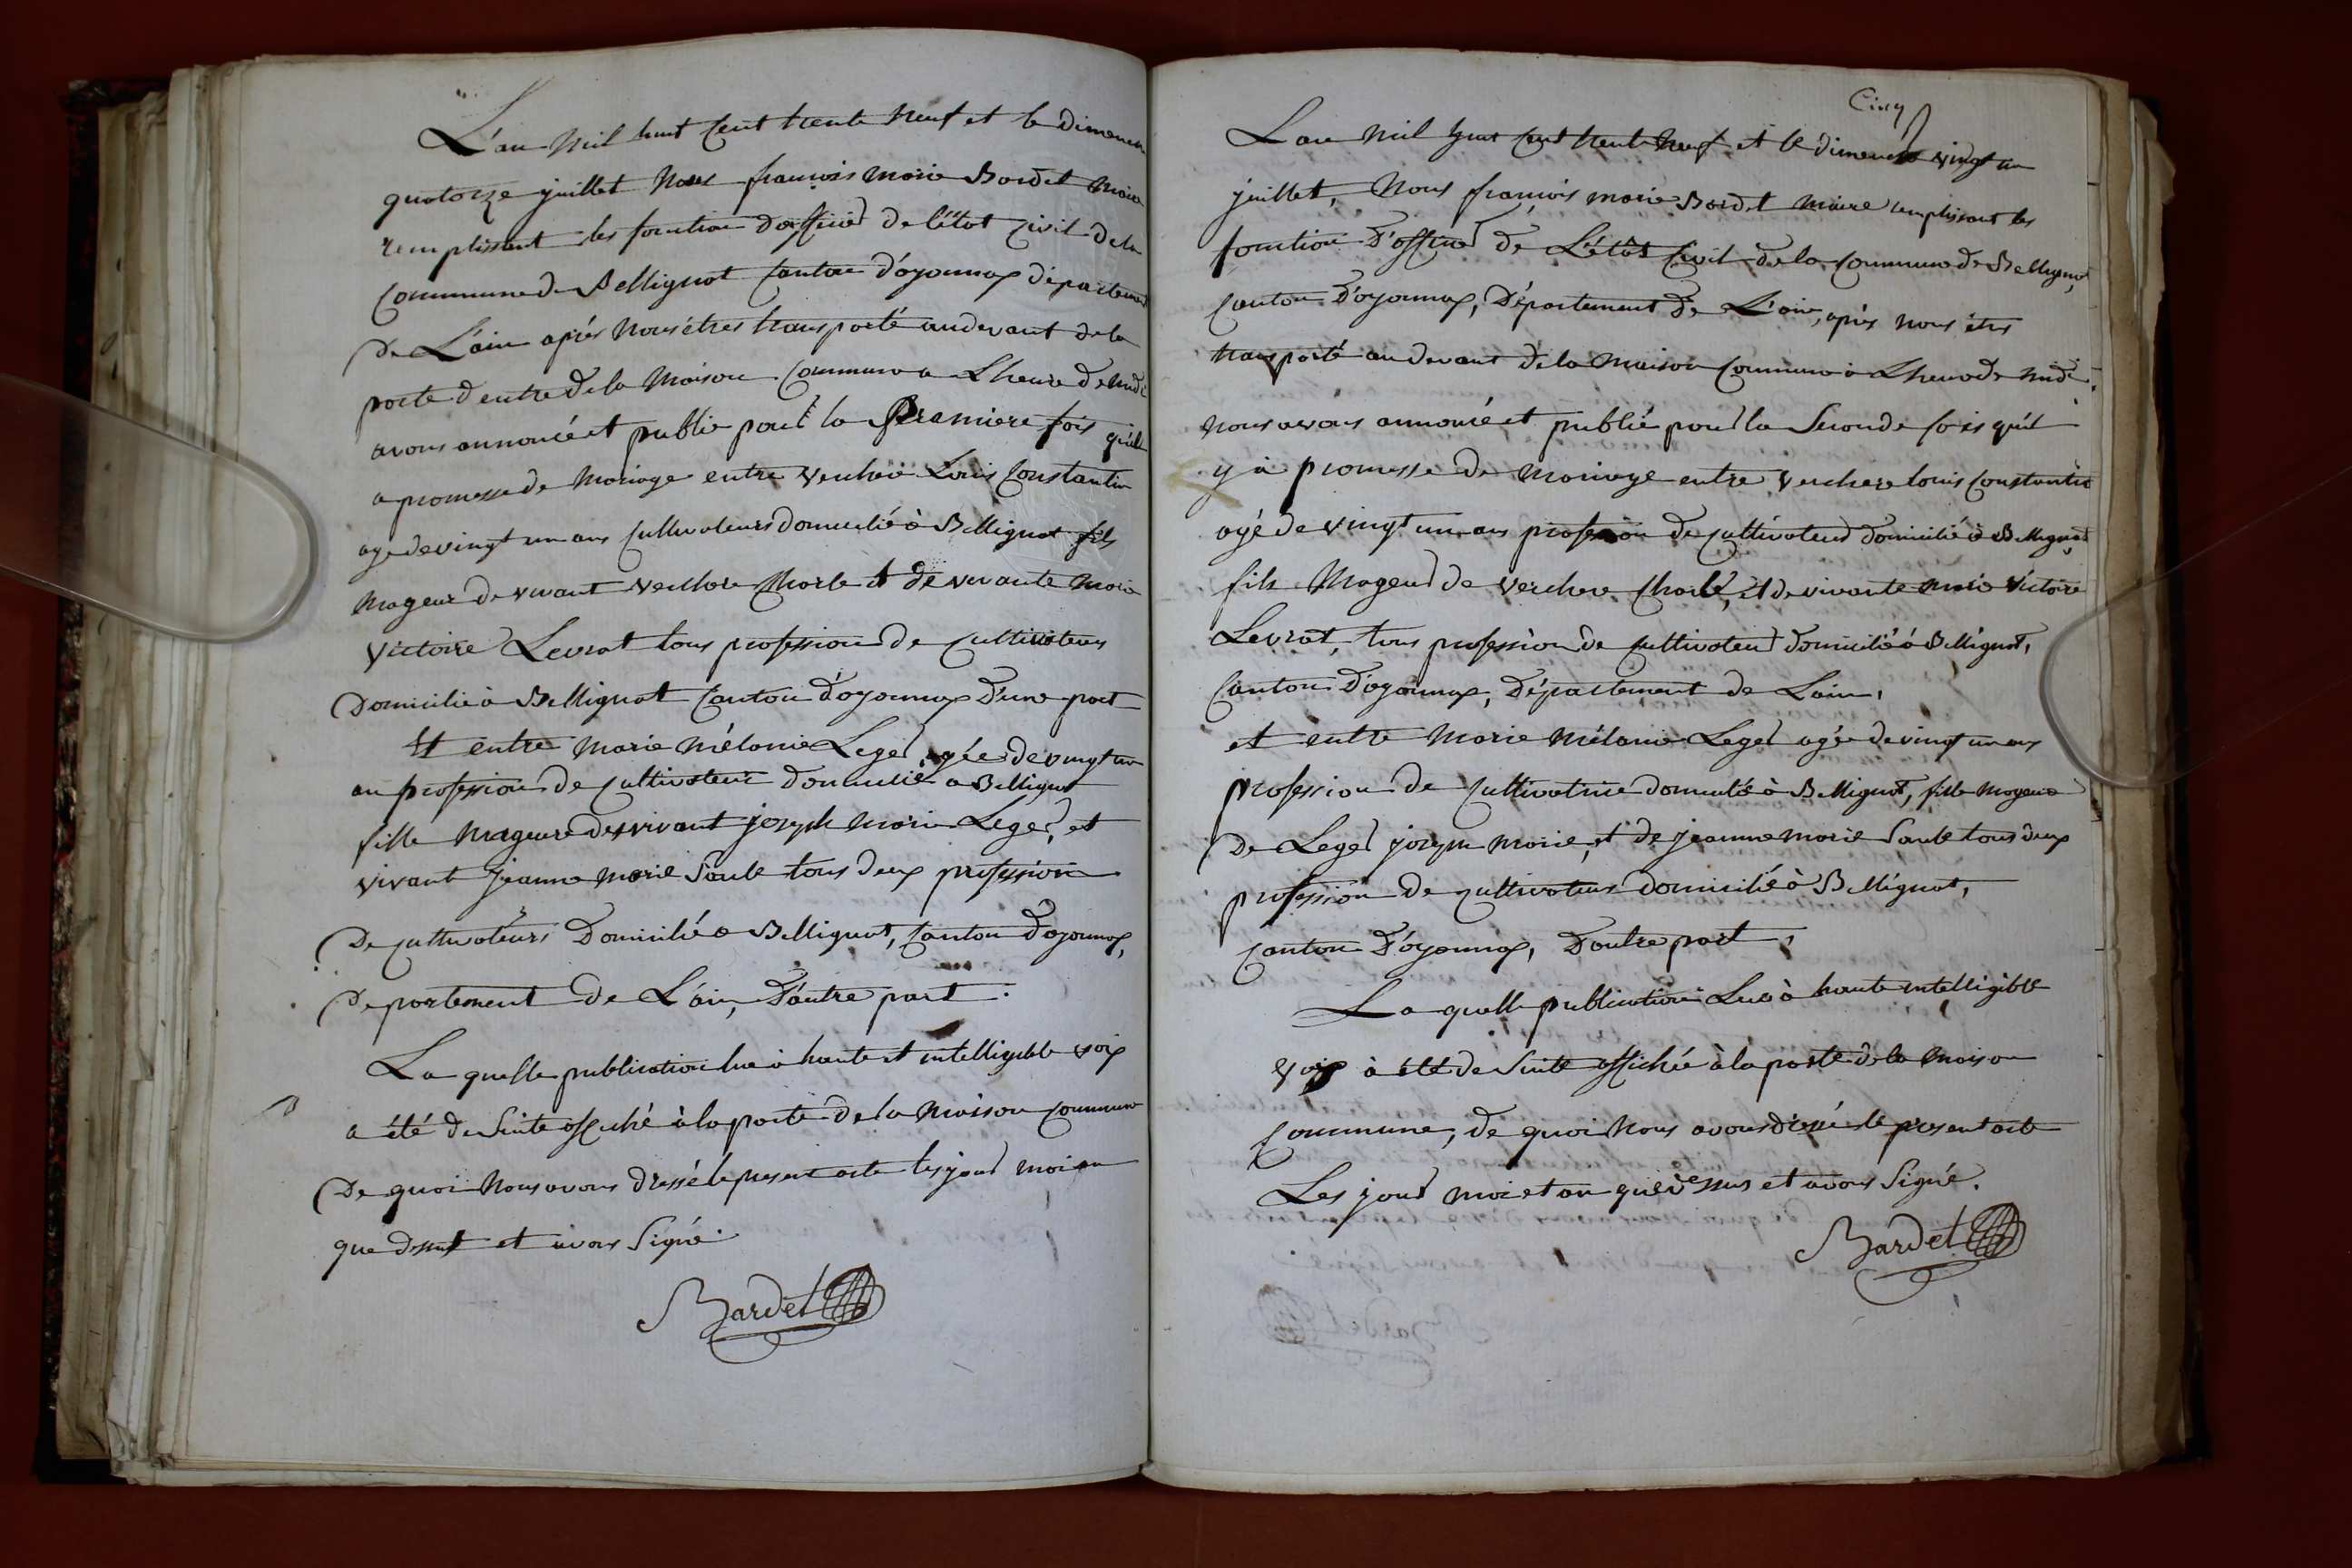 L'an Mil huit Cent trente Neuf et le dimence
quatorze juillet Nous francois marie Bardet Maire
remplissant les fonction d'officier de l'état Civil de la
Commune de Bellignat Canton d'oyonnax département
De L'ain aprés Nous étres transporté au devant de la
porte d'entre de la Maison Commune a L'heure de midi
avons annoncé et publie pour la Premiere fois quil
a promesse de Mariage entre Verchere Louis Constantin
age de vingt un ans Cultivateurs domicilié à Bellignat fils
Mageur de vivant Verchere Charle et de vivante Marie
Victoire Levrat tous profession de Cultivateurs
Domicilié à Bellignat Canton d'oyonnax D'une part
Et entre Marie Mélanie Leger agée de vingt un
an profession de Cultivateur domicilié a Bellignat
fille Mageure de vivant joseph Marie Leger, et
vivant jeanne Marie Saule tous deux profession
De Cultivateurs Domicilié a Bellignat, Canton D'oyonnax,
Departement de L'ain, D'autre part.
La quelle publication lue à haute et intelligible voix
a été de Suite affiché à la porte de la Maison Commune
De quoi Nous avons dressé le present acte les jour moi an
que dessut et avons Signé.
Bardet
Cinq
L'an Mil huit Cent trente Neuf et le dimence vingt un
juillet, Nous francois marie Bardet Maire remplissant les
fonction D'officier de L'état Civil de la Commune de Bellignat,
Canton D'oyonnax, Département De L'ain, aprés nous étres
transporté au devant de la Maison Commune à L'heure de midi.
nous avons annoncé et publié pour la Seconde fois qu'il
y à promesse de Mariage entre Verchere louis Constantin
agé de vingt un ans profession de Cultivateur domicilié à Bellignat,
fils Mageur de Verchere Charle, et de vivante Marie Victoire
Levrat, tous profession de Cultivateur domicilié à Bellignat,
Canton D'oyonnax, Département de Lain,
et entre Marie Mélanie Leger agée de vingt un ans
profession de Cultivatrice domicilié à Bellignat, fille Mageure
De Leger joseph Marie, et de jeanne Marie Saule tous deux
profession de cultivateur domicilié à Bellignat,
Canton D'oyonnax, D'autre part,
La quelle publication Lue à haute intelligible
voix à été de Suite affichée à la porte de la Maison
Commune, de quoi Nous avons dressé le present acte
Les jour moi et an que dessus et avons Signé.
Bardet